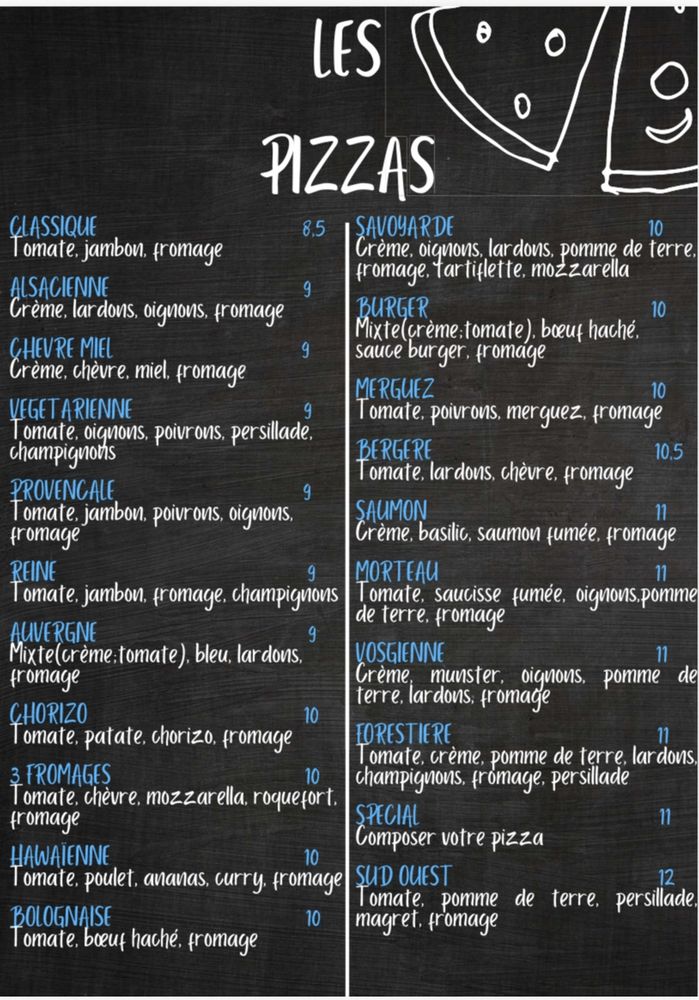 LES
PIZZAS
CLASSIQUE 8,5
Tomate, jambon, fromage
ALSACIENNE 9
Crème, lardons, oignons, fromage
CHEVRE MIEL 9
Crème, chèvre, miel, fromage
VEGETARIENNE 9
Tomate, oignons, poivrons, persillade,
champignons
PROVENCALE 9
Tomate, jambon, poivrons, oignons,
fromage
REINE 9
Tomate, jambon, fromage, champignons
AUVERGNE 9
Mixte(crème;tomate), bleu, lardons,
fromage
CHORIZO 10
Tomate, patate, chorizo, fromage
3 FROMAGES 10
Tomate, chèvre, mozzarella, roquefort,
fromage
HAWAÏENNE 10
Tomate, poulet, ananas, curry, fromage
BOLOGNAISE 10
Tomate, bœuf haché, fromage
SAVOYARDE 10
Crème, oignons, lardons, pomme de terre,
fromage, tartiflette, mozzarella
BURGER 10
Mixte(crème;tomate), bœuf haché,
sauce burger, fromage
MERGUEZ 10
Tomate, poivrons, merguez, fromage
BERGERE 10,5
Tomate, lardons, chèvre, fromage
SAUMON 11
Crème, basilic, saumon fumée, fromage
MORTEAU 11
Tomate, saucisse fumée, oignons,pomme
de terre, fromage
VOSGIENNE 11
Crème, munster, oignons, pomme de
terre, lardons, fromage
FORESTIERE 11
Tomate, crème, pomme de terre, lardons,
champignons, fromage, persillade
SPECIAL 11
Composer votre pizza
SUD OUEST 12
Tomate, pomme de terre, persillade,
magret, fromage